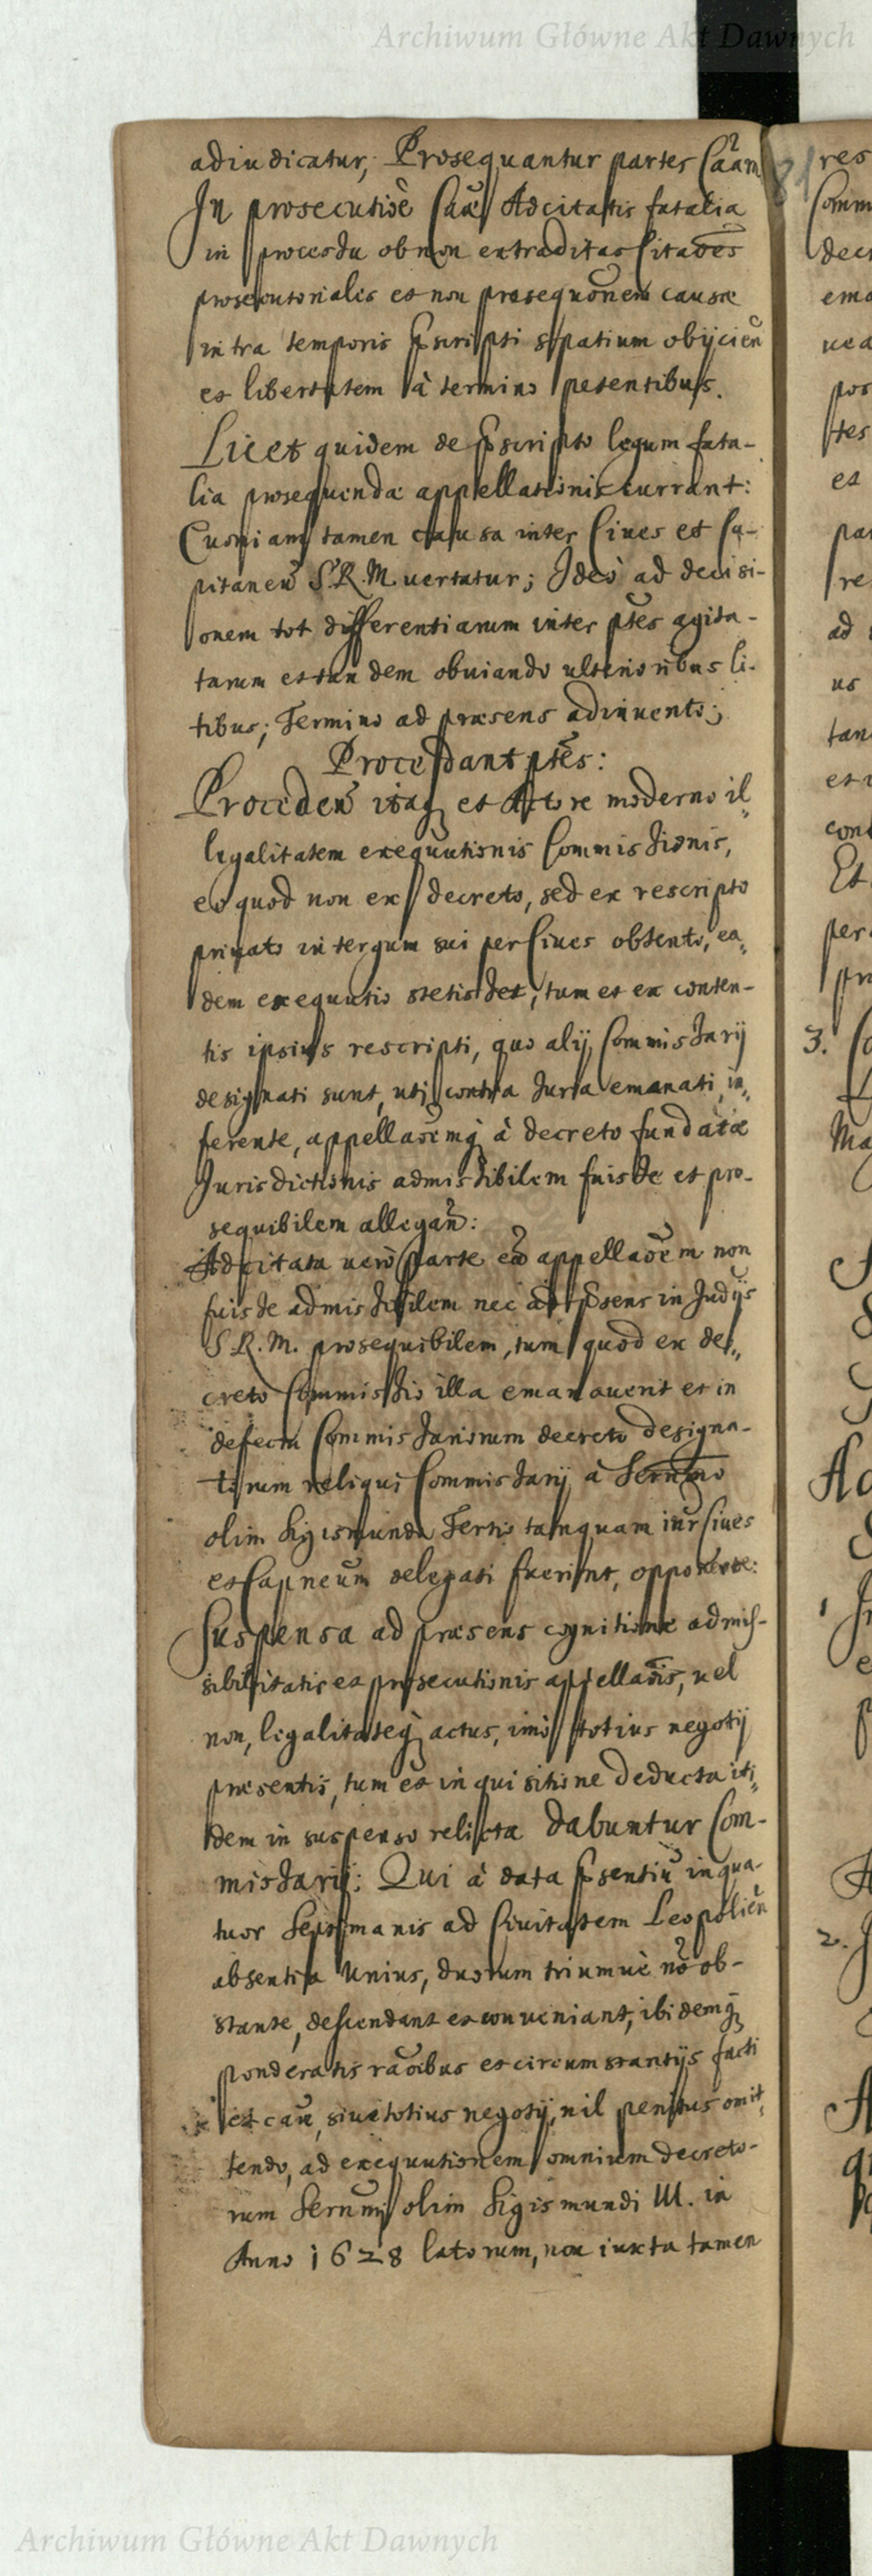 Archiwum Główne Akt Dawnych
adiudicatur, Prosequantur partes Caãm
In prosecutiõe Cau͠æ Adcitatis fatalia
in processu ob non extraditas Citaões
prosecutoriales et non prosequõnem causæ
intra temporis p̃scripti spatium obijcieñ
et libertatem à termino petentibus.
Licet quidem de p̃scripto legum fata-
lia prosequendæ appellationis currant:
Cuoniam tamen causa inter Ciues et Ca-
pitaneũ S.R.M. uertatur; Ideò ad decisi-
onem tot differentiarum inter ptes agita-
tarum et tandem obuiando ulterioribus li-
tibus; Termino ad præsens adinuento;
Procedant ptes:
Procedeñ itaq et Actore moderno il„
legalitatem exequutionis Commissionis,
eo quod non ex decreto, sed ex rescripto
priuato in tergum sui per Ciues obtento, ea„
dem exequutio stetisset, tum et ex conten-
tis ipsius rescripti, quo alij Commissarij
designati sunt, uti contra Iura emanati, in„
ferente, appellaõemq à decreto fundatæ
Jurisdictionis admissibilem fuisse et pro-
sequibilem allegañ:
Adcitata uerò parte eã appellaõem non
fuisse admissibilem nec ad p̃sens in Judijs
S.R.M. prosequibilem, tum quod ex de„
creto Commissio illa emanauerit et in
defectu Commissariorum decreto designa-
torum reliqui Commissarij à Sernmo
olim Sigismundo Tertio tamquam inr̃ Ciues
et Capneũm delegati fuerint, opponente:
Suspensa ad præsens cognitione admis-
sibilitatis et prosecutionis appellaõis, uel
non, legalitateq actus, imò totius negotij
præsentis, tum et in quisitione deducta iti„
dem in suspenso relicta dabuntur Com-
missarij: Qui à data p̃sentiũ in qua-
tuor Septimanis ad Ciuitatem Leopolieñ
absentia unius, duorum triumuè nõ ob-
stante, descendant et conueniant, ibidemq
ponderatis raõibus et circumstantijs facti
et cau͠, siue totius negotij, nil penitus omit„
tendo, ad exequutionem omnium decreto-
rum Sernmi olim Sigismundi III. in
Anno 1628 latorum, non iuxta tamen
Archiwum Główne Akt Dawnych